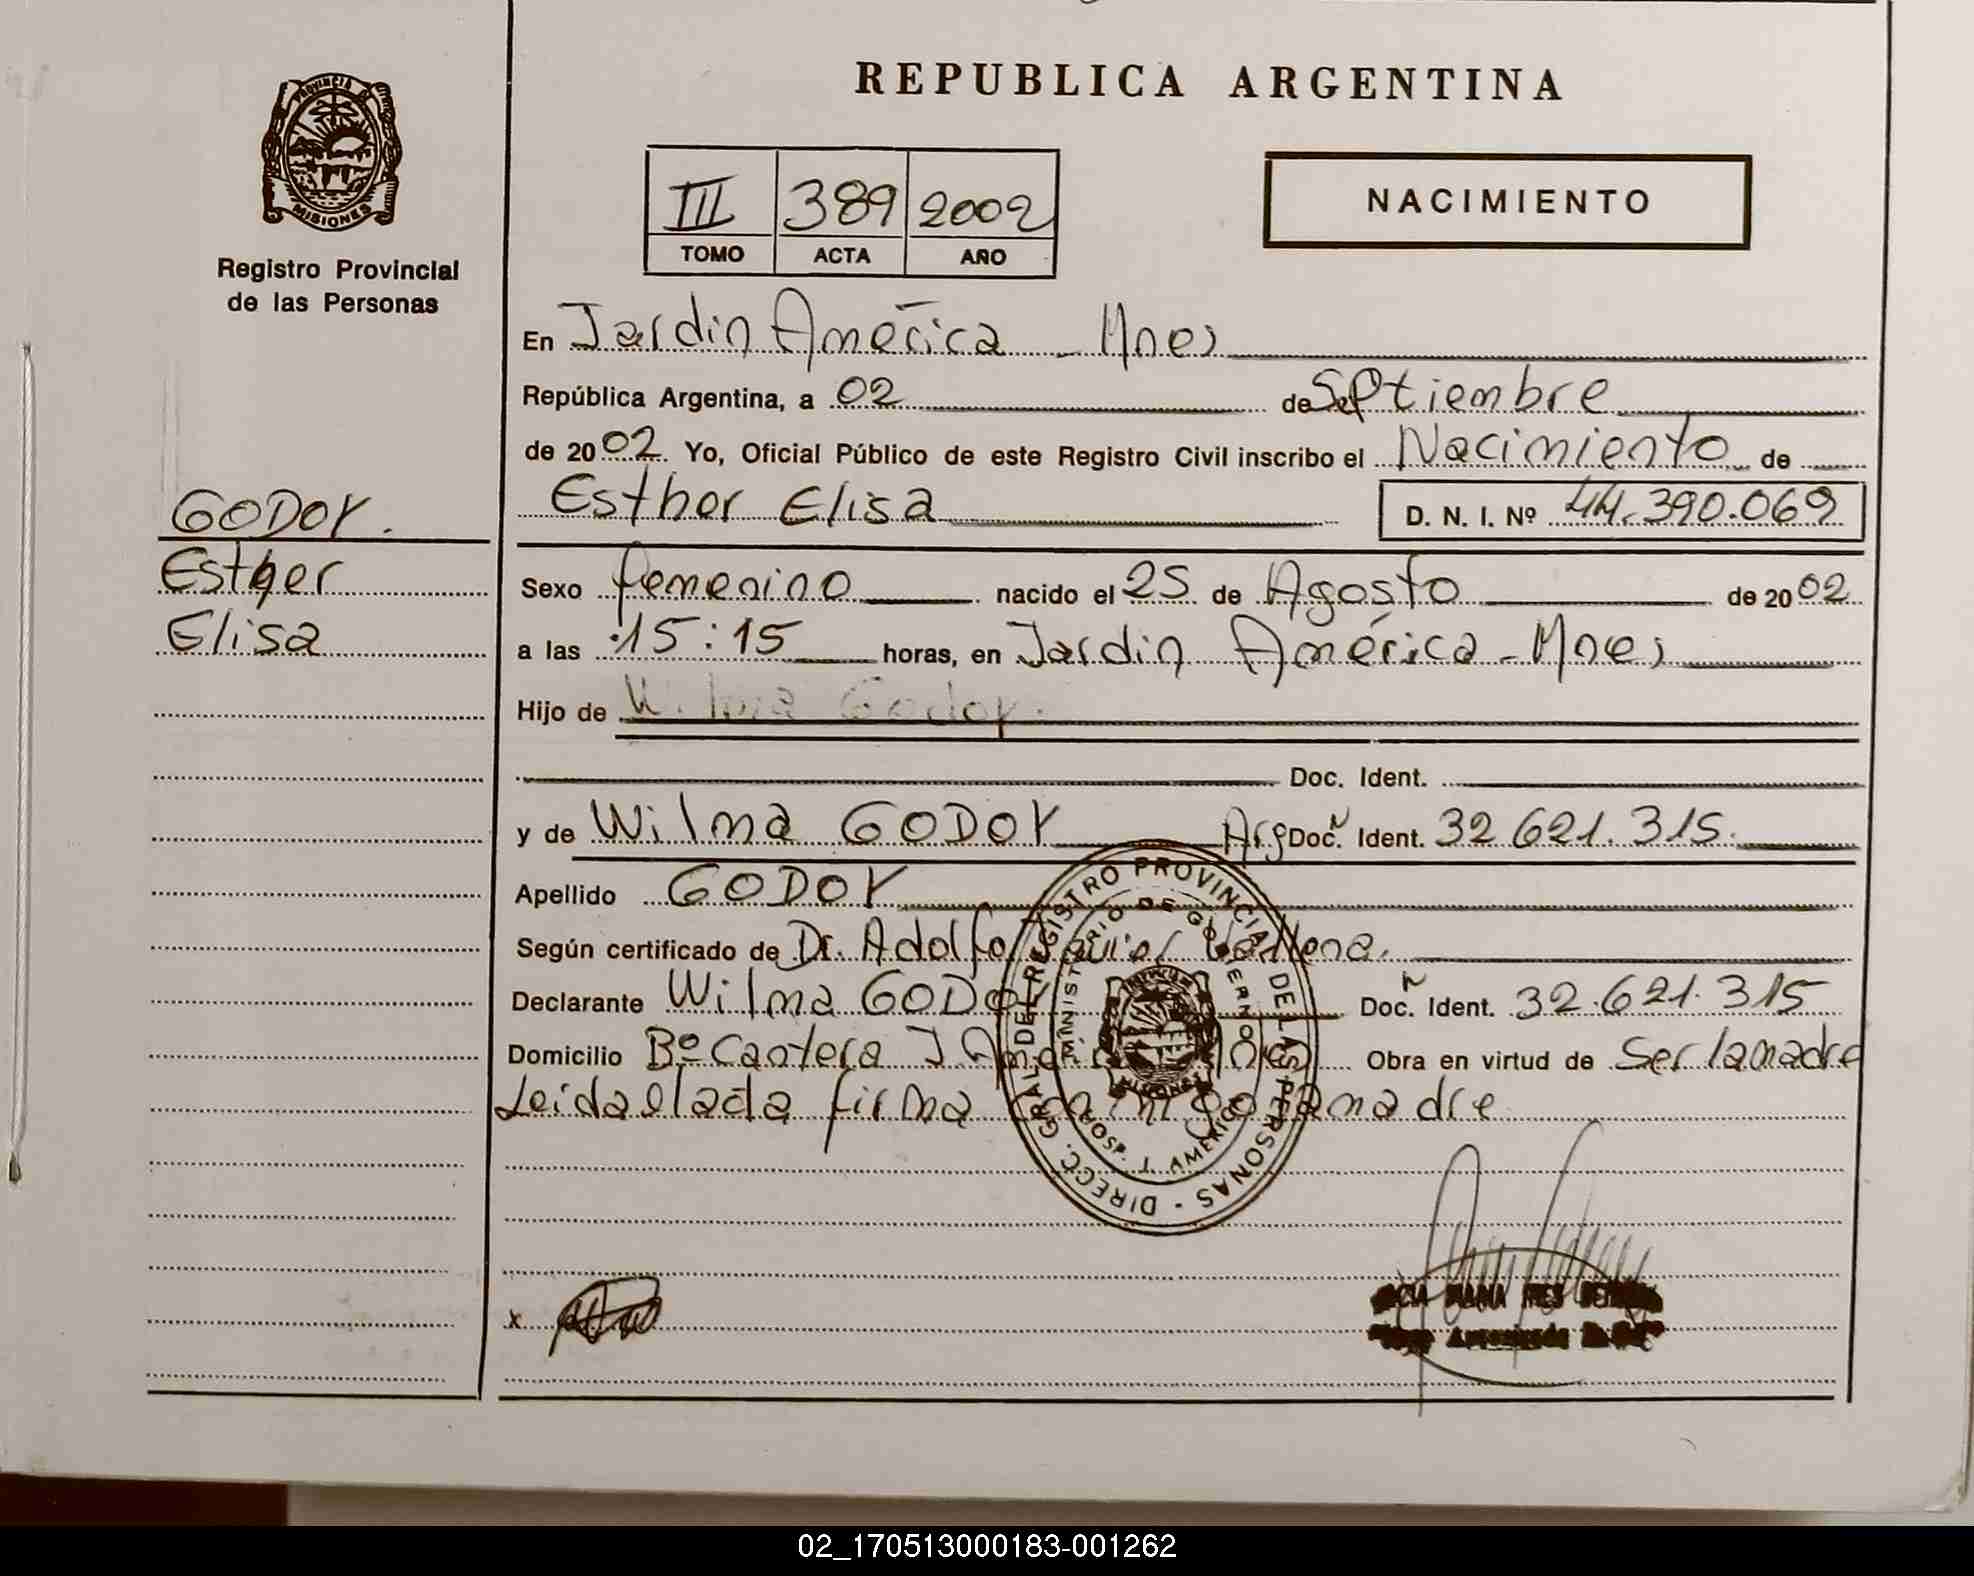 REPUBLICA ARGENTINA
PROVINCIA DE
MISIONES
Registro Provincial
de las Personas
III 389 2002
TOMO ACTA AÑO
NACIMIENTO
En Jardin América - Mnes
República Argentina, a 02 de Septiembre
de 2002. Yo, Oficial Público de este Registro Civil inscribo el Nacimiento de
Esther Elisa D. N. I. Nº 44.390.069
GODOY.
Esther
Elisa
Sexo femenino nacido el 25 de Agosto de 2002
a las 15:15 horas, en Jardin América - Mnes
Hijo de Wilma Godoy.
Doc. Ident.
y de Wilma GODOY Arg Doc. Ident. 32.621.315.
Apellido GODOY
Según certificado de Dr. Adolfo
Declarante Wilma GODOY Doc. Ident. 32.621.315
Domicilio Bº Cantera J. América Mnes Obra en virtud de Ser la madre
Leida el acta firma conmigo la madre
DIRECC. GRAL. DEL REGISTRO PROVINCIAL DE LAS PERSONAS
MINISTERIO DE GOBIERNO
J. AMERICA
x
02_170513000183-001262